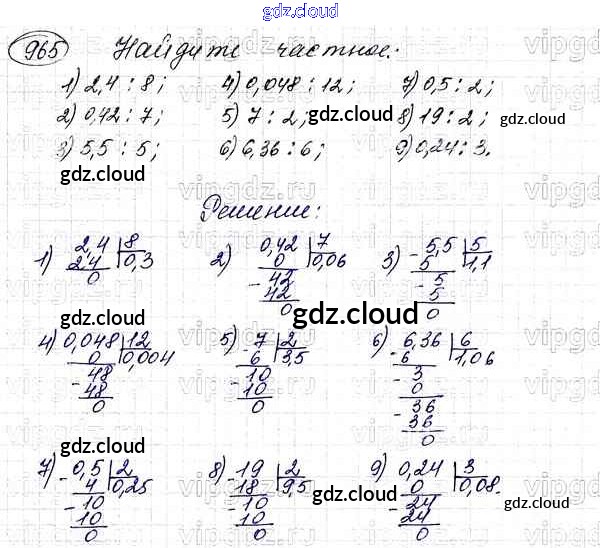 gdz.cloud
965 Найдите частное:
1) 2,4 : 8; 4) 0,048 : 12; 7) 0,5 : 2;
2) 0,42 : 7; 5) 7 : 2; gdz.cloud 8) 19 : 2; gdz.cloud
3) 5,5 : 5; 6) 6,36 : 6; 9) 0,24 : 3.
gdz.cloud
Решение:
1) 2,4 8 2) 0,42 7 3) - 5,5 5
2,4 0,3 0 0,06 5 1,1
0 - 42 - 5
42 5
0 0
gdz.cloud
4) 0,048 12 5) - 7 2 6) - 6,36 6
0 0,004 6 3,5 6 1,06
- 48 - 10 - 3
48 10 0
0 0 - 36
36
0
gdz.cloud
7) - 0,5 2 8) - 19 2 9) 0,24 3
4 0,25 18 9,5 0 0,08.
gdz.cloud
- 10 - 10 - 24 gdz.cloud
10 10 24
0 0 0